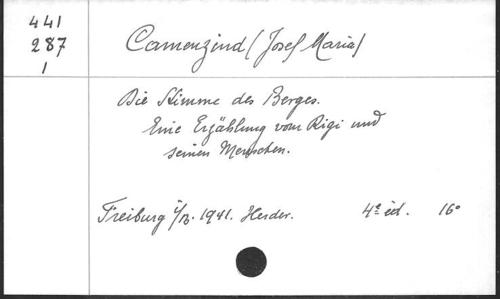 441
287
1
Camenzind (Josef Maria)
Die Stimme des Berges.
Eine Erzählung vom Rigi und
seinen Menschen.
Freiburg i/B. 1941. Herder. 4e éd. 16°